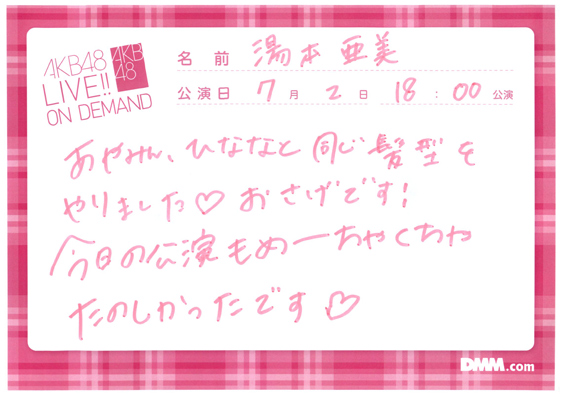 AKB48
LIVE!!
ON DEMAND
AKB
48
名前 湯本亜美
公演日 7月2日 18:00公演
あやみん、ひななと同じ髪型を
やりました♡おさげです!
今日の公演もめーちゃくちゃ
たのしかったです♡
DMM.com